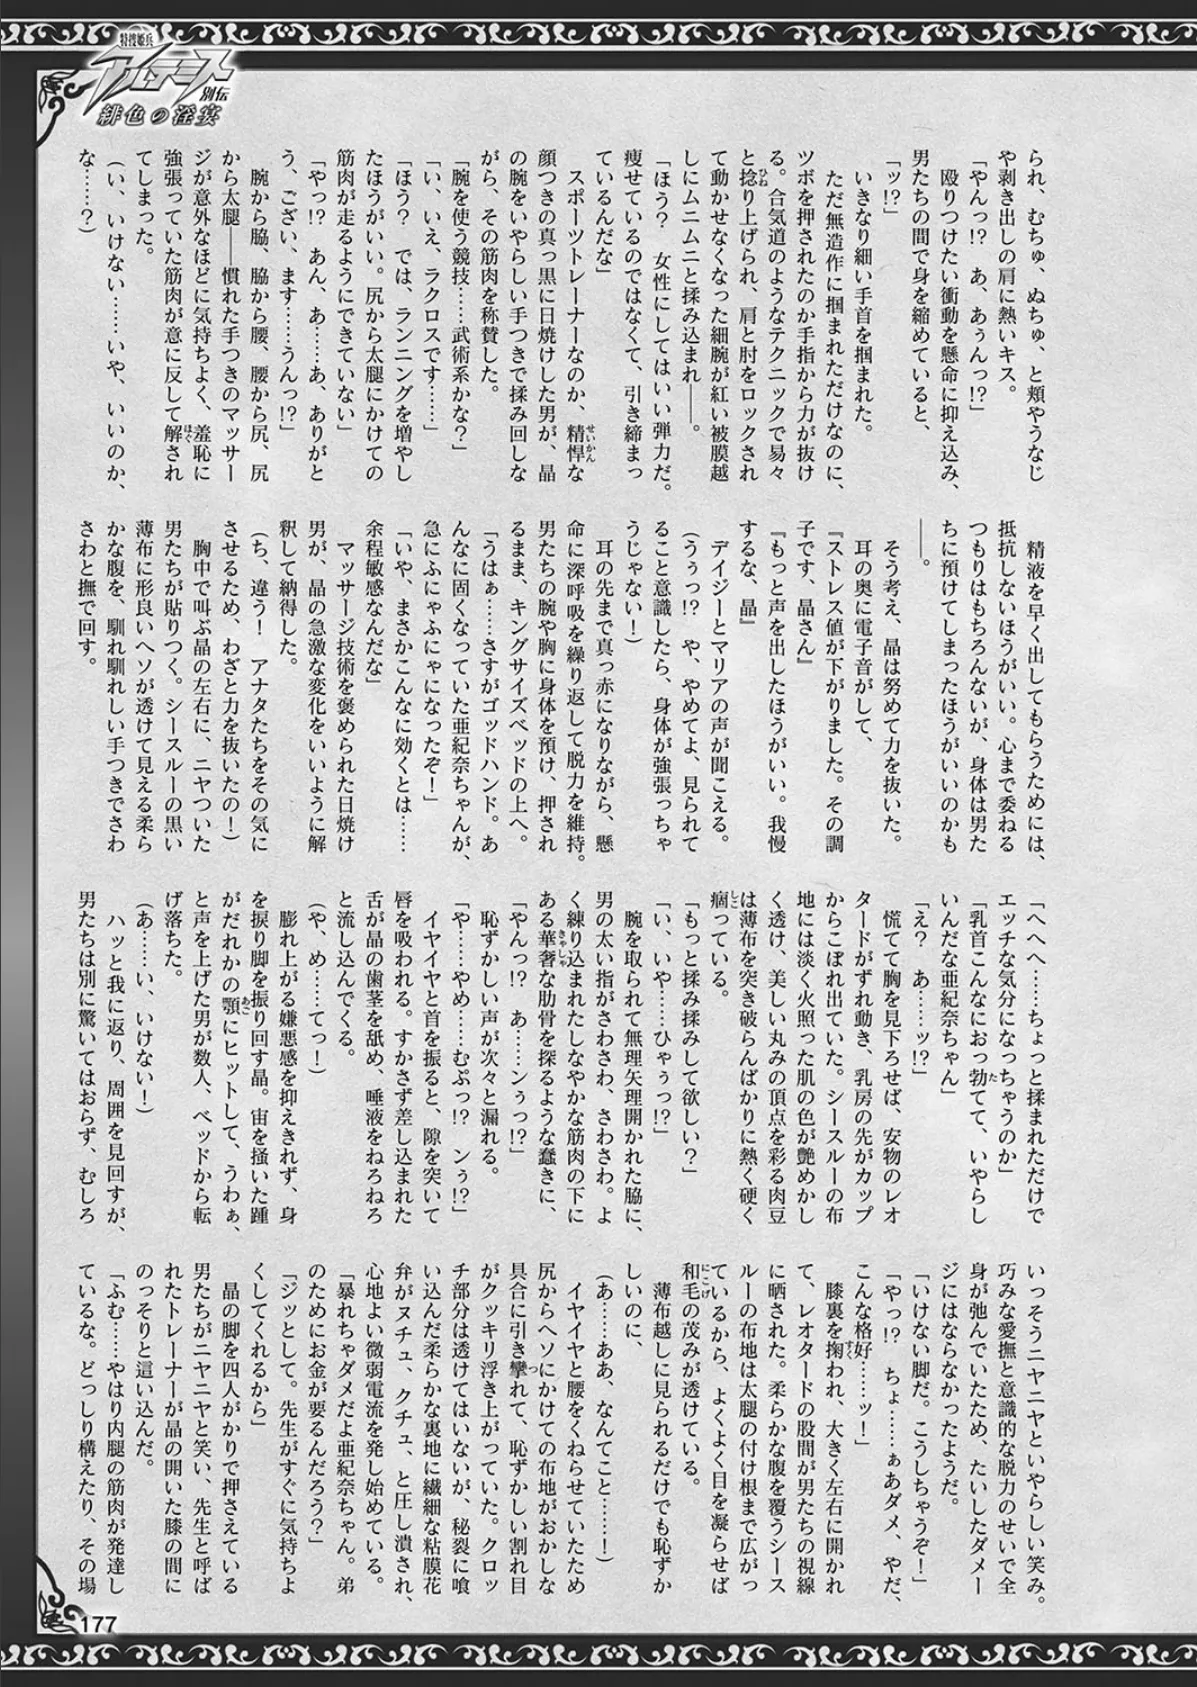 特捜姫兵
アルテミスト
別伝
緋色の淫宴
られ、むちゅ、ぬちゅ、と頬やうなじ
や剥き出しの肩に熱いキス。
「やんっ!? あ、あぅんっ!?」
殴りつけたい衝動を懸命に抑え込み、
男たちの間で身を縮めていると、
「ッ!?」
いきなり細い手首を掴まれた。
ただ無造作に掴まれただけなのに、
ツボを押されたのか手指から力が抜け
る。合気道のようなテクニックで易々
と捻り上げられ、肩と肘をロックされ
て動かせなくなった細腕が紅い被膜越
しにムニムニと揉み込まれ――。
「ほう? 女性にしてはいい弾力だ。
痩せているのではなくて、引き締まっ
ているんだな」
スポーツトレーナーなのか、精悍な
顔つきの真っ黒に日焼けした男が、晶
の腕をいやらしい手つきで揉み回しな
がら、その筋肉を称賛した。
「腕を使う競技……武術系かな?」
「い、いえ、ラクロスです……」
「ほう? では、ランニングを増やし
たほうがいい。尻から太腿にかけての
筋肉が走るようにできていない」
「やっ!? あん、あ……あ、ありがと
う、ござい、ます……うんっ!?」
腕から脇、脇から腰、腰から尻、尻
から太腿――慣れた手つきのマッサー
ジが意外なほどに気持ちよく、羞恥に
強張っていた筋肉が意に反して解され
てしまった。
(い、いけない……いや、いいのか、
な……?)
精液を早く出してもらうためには、
抵抗しないほうがいい。心まで委ねる
つもりはもちろんないが、身体は男た
ちに預けてしまったほうがいいのかも
――。
そう考え、晶は努めて力を抜いた。
耳の奥に電子音がして、
『ストレス値が下がりました。その調
子です、晶さん』
『もっと声を出したほうがいい。我慢
するな、晶』
デイジーとマリアの声が聞こえる。
(うぅっ!? や、やめてよ、見られて
ること意識したら、身体が強張っちゃ
うじゃない!)
耳の先まで真っ赤になりながら、懸
命に深呼吸を繰り返して脱力を維持。
男たちの腕や胸に身体を預け、押され
るまま、キングサイズベッドの上へ。
「うはぁ……さすがゴッドハンド。あ
んなに固くなっていた亜紀奈ちゃんが、
急にふにゃふにゃになったぞ!」
「いや、まさかこんなに効くとは……
余程敏感なんだな」
マッサージ技術を褒められた日焼け
男が、晶の急激な変化をいいように解
釈して納得した。
(ち、違う! アナタたちをその気に
させるため、わざと力を抜いたの!)
胸中で叫ぶ晶の左右に、ニヤついた
男たちが貼りつく。シースルーの黒い
薄布に形良いヘソが透けて見える柔ら
かな腹を、馴れ馴れしい手つきでさわ
さわと撫で回す。
「へへへ……ちょっと揉まれただけで
エッチな気分になっちゃうのか」
「乳首こんなにおっ勃てて、いやらし
いんだな亜紀奈ちゃん」
「え? あ……ッ!?」
慌てて胸を見下ろせば、安物のレオ
タードがずれ動き、乳房の先がカップ
からこぼれ出ていた。シースルーの布
地には淡く火照った肌の色が艶めかし
く透け、美しい丸みの頂点を彩る肉豆
は薄布を突き破らんばかりに熱く硬く
痼っている。
「もっと揉み揉みして欲しい?」
「い、いや……ひゃぅっ!?」
腕を取られて無理矢理開かれた脇に、
男の太い指がさわさわ、さわさわ。よ
く練り込まれたしなやかな筋肉の下に
ある華奢な肋骨を探るような蠢きに、
「やんっ!? あ……ンぅっ!?」
恥ずかしい声が次々と漏れる。
「や……やめ……むぷっ!? ンぅ!?」
イヤイヤと首を振ると、隙を突いて
唇を吸われる。すかさず差し込まれた
舌が晶の歯茎を舐め、唾液をねろねろ
と流し込んでくる。
(や、め……てっ!)
膨れ上がる嫌悪感を抑えきれず、身
を捩り脚を振り回す晶。宙を掻いた踵
がだれかの顎にヒットして、うわぁ、
と声を上げた男が数人、ベッドから転
げ落ちた。
(あ……い、いけない!)
ハッと我に返り、周囲を見回すが、
男たちは別に驚いてはおらず、むしろ
いっそうニヤニヤといやらしい笑み。
巧みな愛撫と意識的な脱力のせいで全
身が弛んでいたため、たいしたダメー
ジにはならなかったようだ。
「いけない脚だ。こうしちゃうぞ!」
「やっ!? ちょ……ぁあダメ、やだ、
こんな格好……ッ!」
膝裏を掬われ、大きく左右に開かれ
て、レオタードの股間が男たちの視線
に晒された。柔らかな腹を覆うシース
ルーの布地は太腿の付け根まで広がっ
ているから、よくよく目を凝らせば
和毛の茂みが透けている。
薄布越しに見られるだけでも恥ずか
しいのに、
(あ……ああ、なんてこと……!)
イヤイヤと腰をくねらせていたため
尻からヘソにかけての布地がおかしな
具合に引き攣れて、恥ずかしい割れ目
がクッキリ浮き上がっていた。クロッ
チ部分は透けてはいないが、秘裂に喰
い込んだ柔らかな裏地に繊細な粘膜花
弁がヌチュ、クチュ、と圧し潰され、
心地よい微弱電流を発し始めている。
「暴れちゃダメだよ亜紀奈ちゃん。弟
のためにお金が要るんだろう?」
「ジッとして。先生がすぐに気持ちよ
くしてくれるから」
晶の脚を四人がかりで押さえている
男たちがニヤニヤと笑い、先生と呼ば
れたトレーナーが晶の開いた膝の間に
のっそりと這い込んだ。
「ふむ……やはり内腿の筋肉が発達し
ているな。どっしり構えたり、その場
177